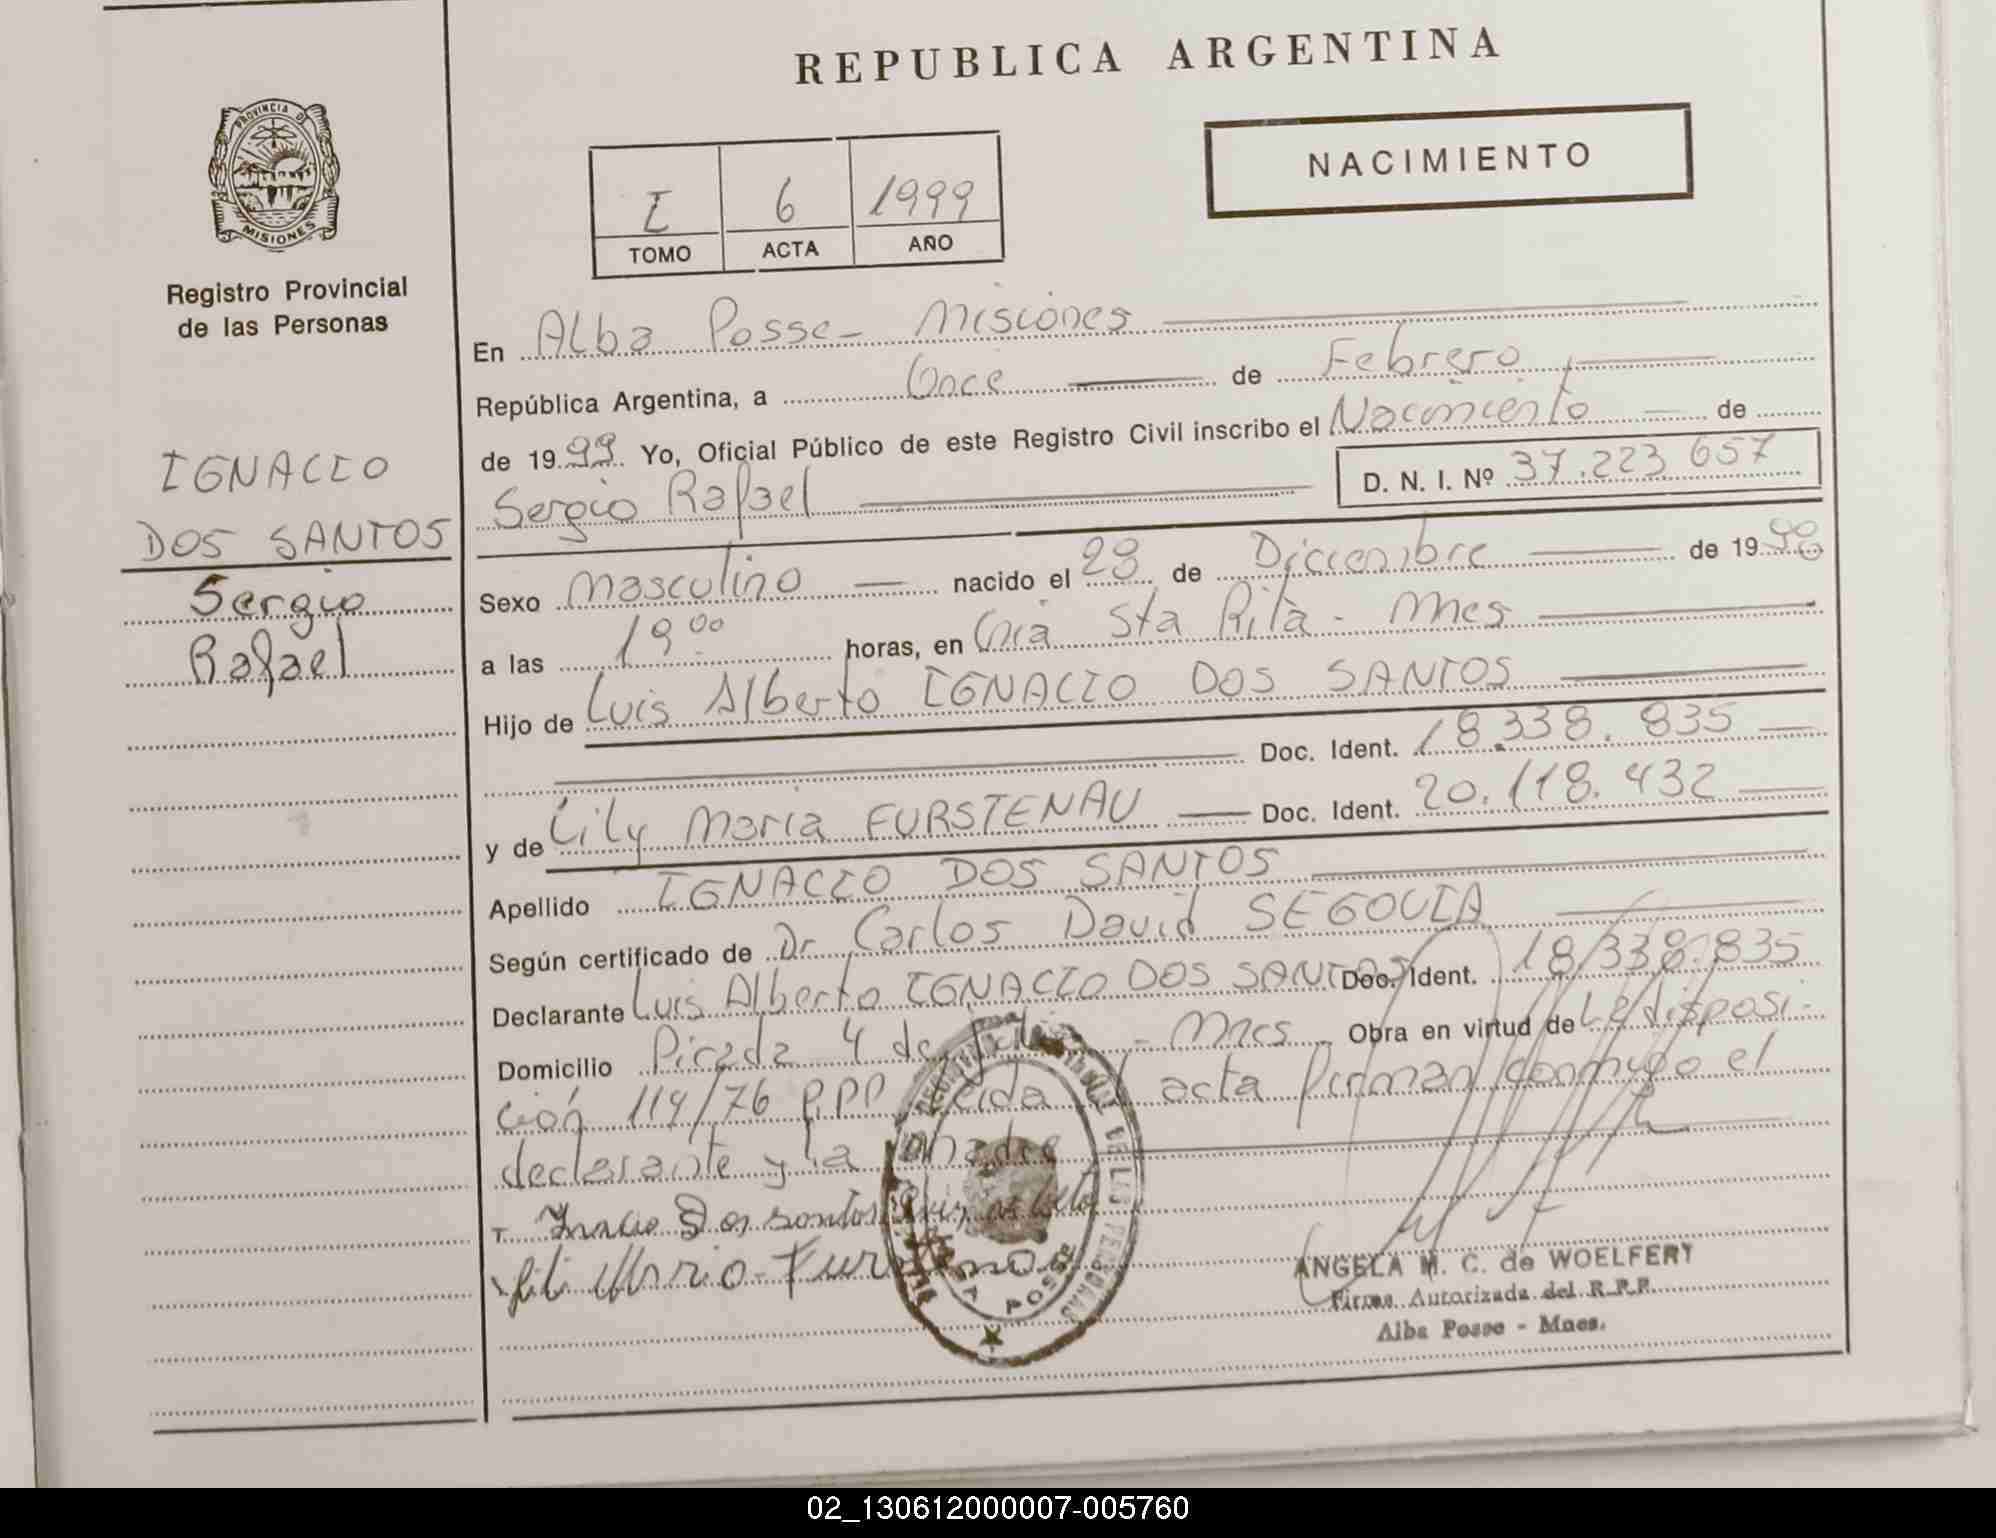 REPUBLICA ARGENTINA
PROVINCIA D
MISIONES
Registro Provincial
de las Personas
NACIMIENTO
I 6 1999
TOMO ACTA AÑO
IGNACIO
DOS SANTOS
Sergio
Rafael
En Alba Posse - Misiones
República Argentina, a Once de Febrero
de 1999 Yo, Oficial Público de este Registro Civil inscribo el Nacimiento de
Sergio Rafael D. N. I. Nº 37.223.657
Sexo Masculino nacido el 28 de Diciembre de 1998
a las 19 00 horas, en Cnia Sta Rita - Mnes
Hijo de Luis Alberto IGNACIO DOS SANTOS
Doc. Ident. 18.338.835
y de Lily Maria FURSTENAU Doc. Ident. 20.118.432
Apellido IGNACIO DOS SANTOS
Según certificado de Dr. Carlos David SEGOVIA
Declarante Luis Alberto IGNACIO DOS SANTOS Doc. Ident. 18.338.835
Domicilio Picada 4 de - Mnes Obra en virtud de La disposi-
ción 114/76 acta firman conmigo el
declarante y la madre
dos santos
Maria Furstenau
ALBA POSSE
ANGELA M. C. de WOELFERT
Firma Autorizada del R.P.P.
Alba Posse - Mnes.
02_130612000007-005760